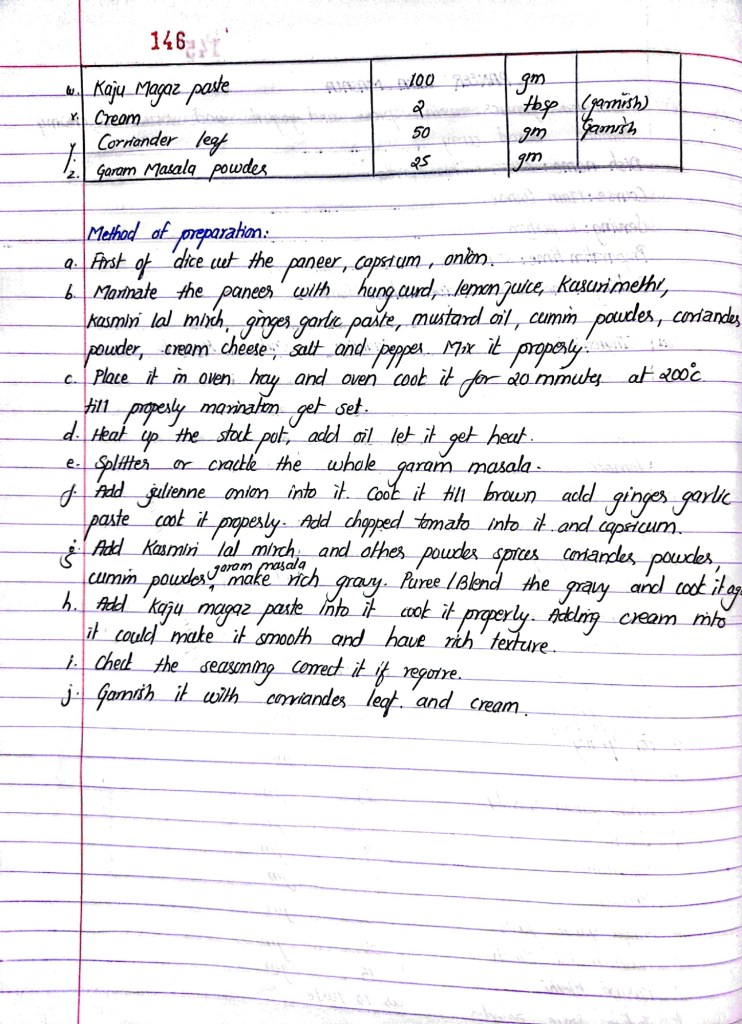 146
w. Kaju Magaz paste 100 gm
x. Cream 2 tbsp (garnish)
y. Corriander leaf 50 gm Garnish
z. Garam Masala powder 25 gm
Method of preparation:
a. First of dice cut the paneer, capsium, onion.
b. Marinate the paneer with hung curd, lemon juice, Kasurimethi,
Kasmiri lal mirch, ginger garlic paste, mustard oil, cumin powder, coriander
powder, cream cheese, salt and pepper. Mix it properly.
c. Place it in oven hay and oven cook it for 20 minutes at 200°c
till properly marination get set.
d. Heat up the stock pot, add oil let it get heat.
e. Splitter or crackle the whole garam masala.
f. Add julienne onion into it. Cook it till brown add ginger garlic
paste cook it properly. Add chopped tomato into it and capsicum.
g. Add Kasmiri lal mirch, and other powder spices coriander powder,
cumin powder, garam masala make rich gravy. Puree / Blend the gravy and cook it ag
h. Add Kaju magaz paste into it cook it properly. Adding cream into
it could make it smooth and have rich texture.
i. Check the seasoning correct it if regoire.
j. Garnish it with corriander leaf. and cream.